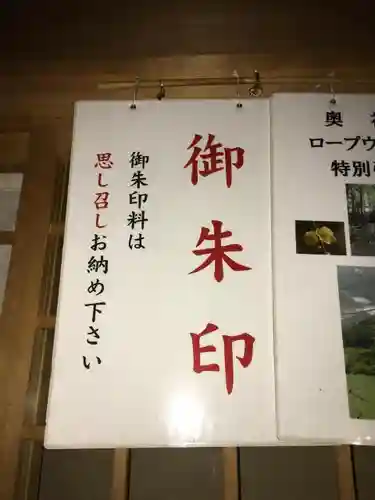 御朱印
御朱印料は
思し召しお納め下さい
奥
ロープウ
特別